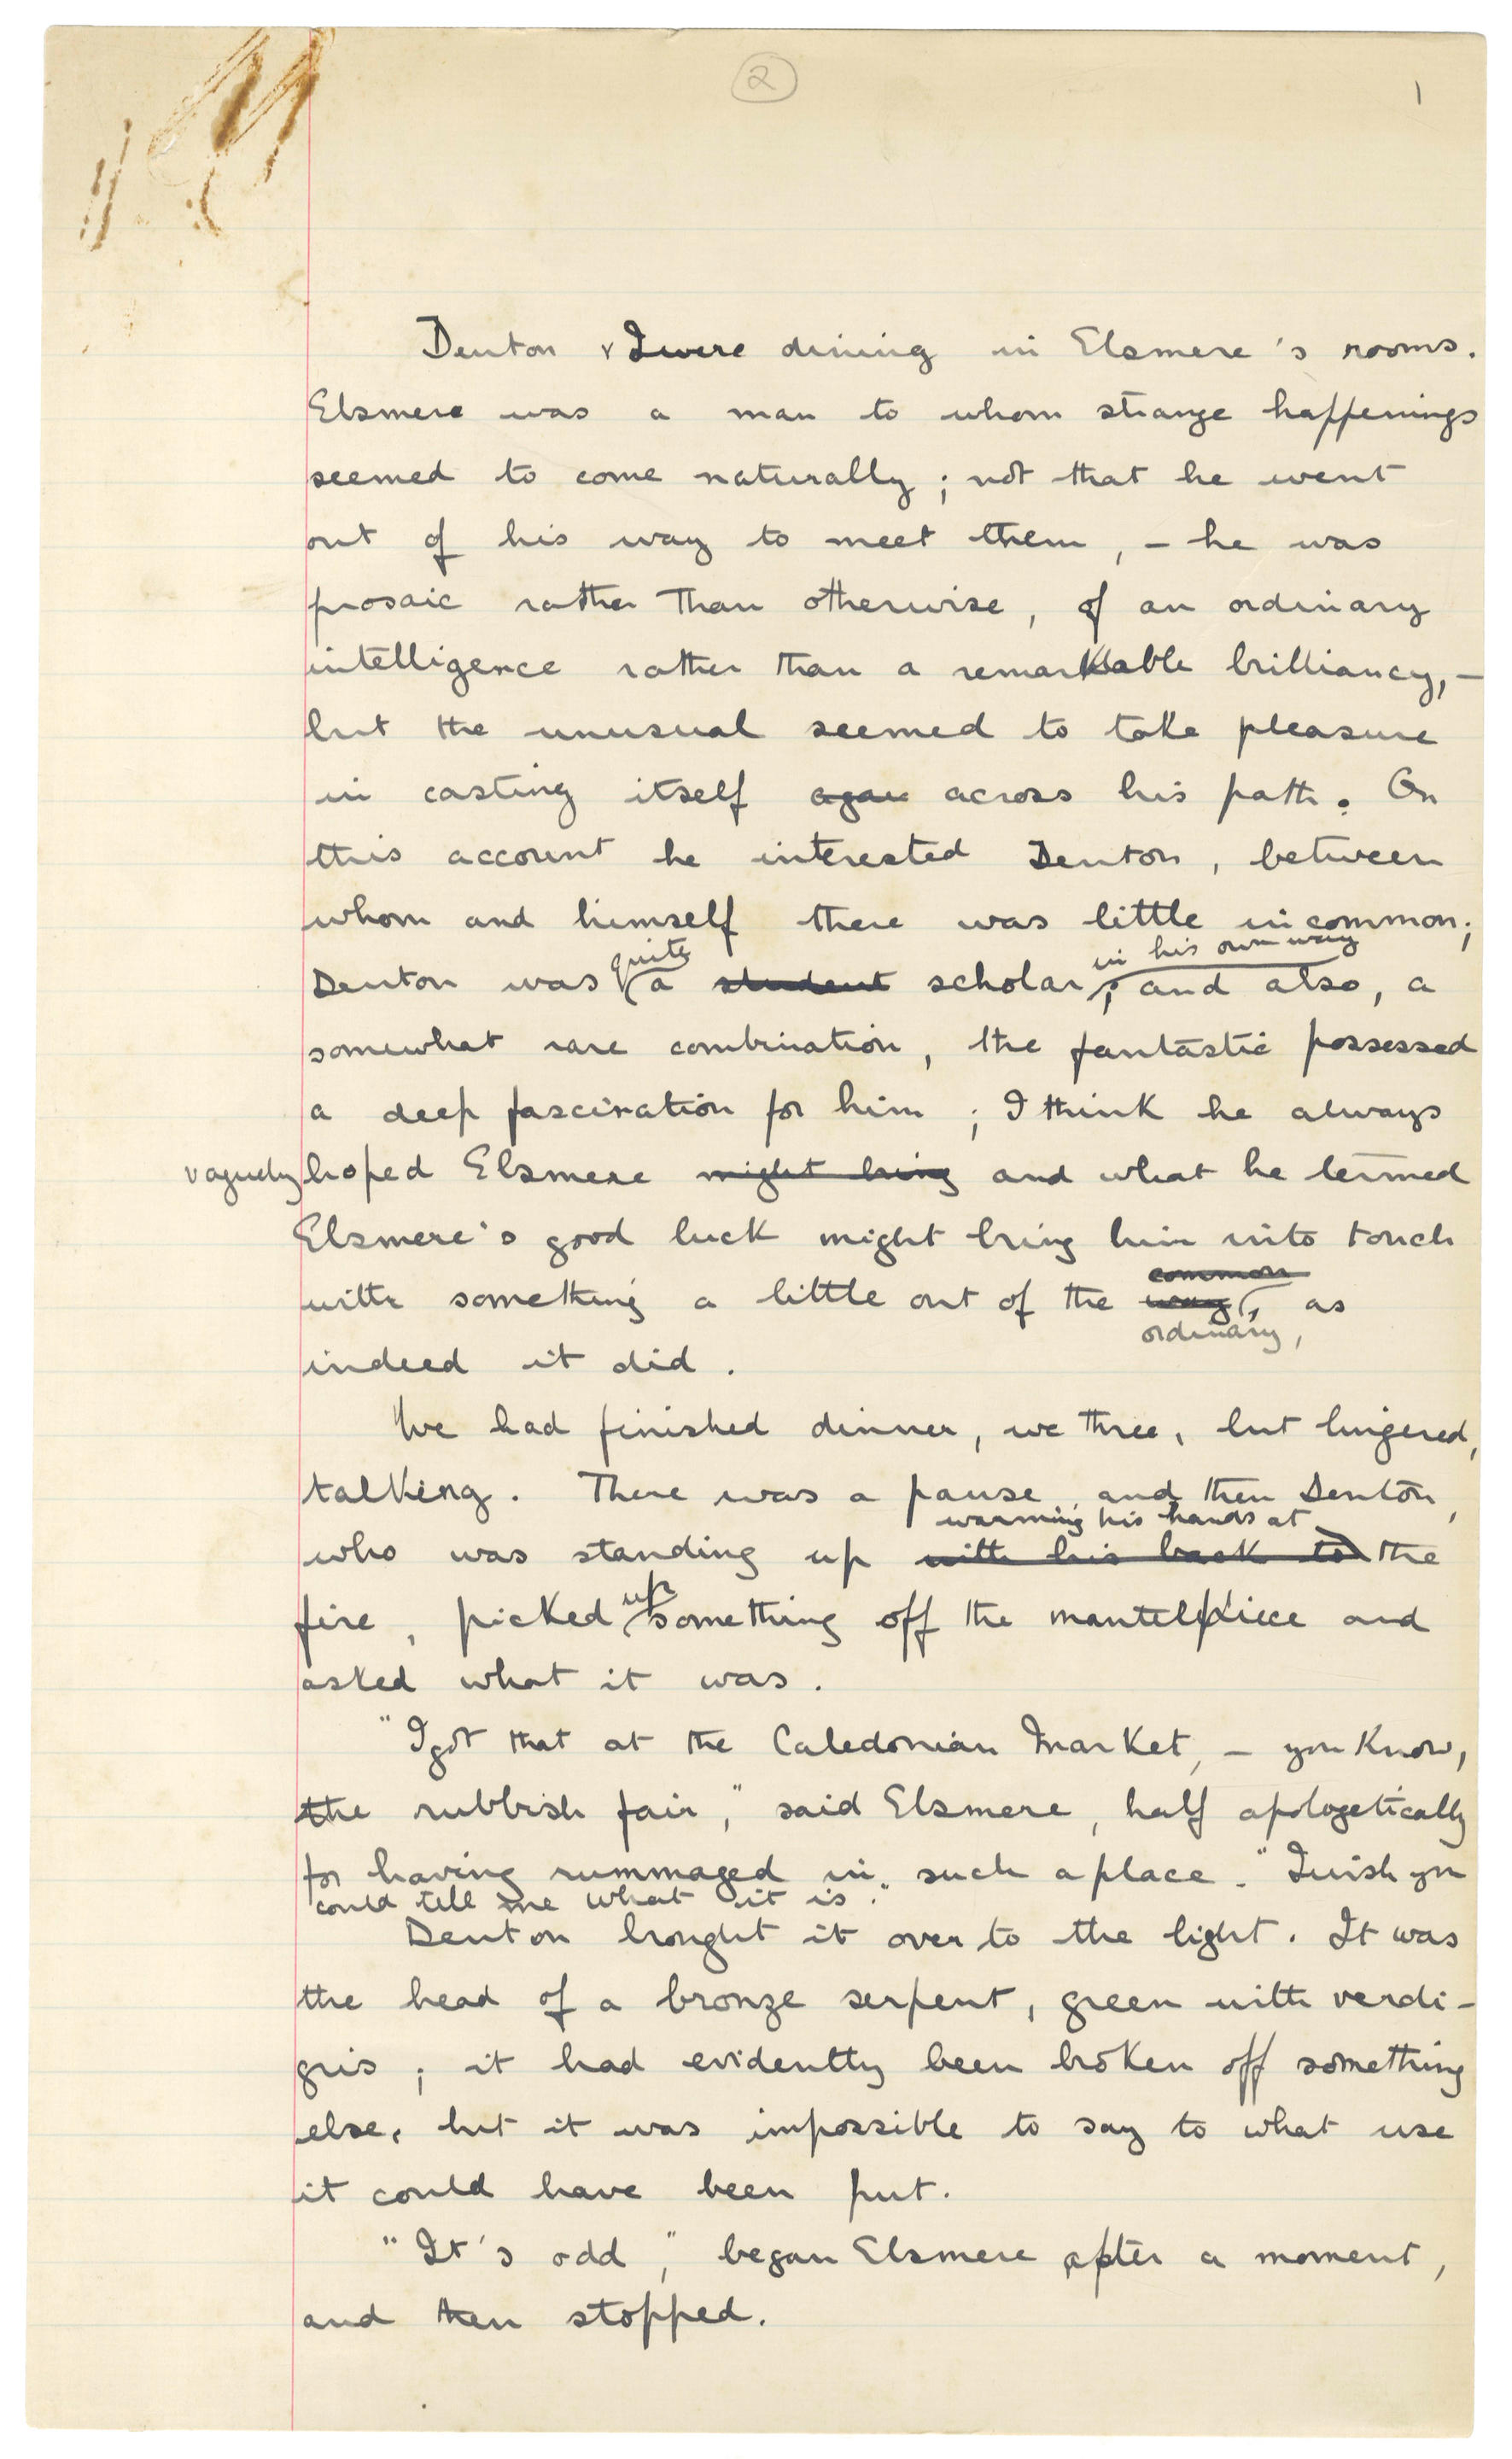 2
1
Denton & I were dining in Elsmere's rooms.
Elsmere was a man to whom strange happenings
seemed to come naturally; not that he went
out of his way to meet them, – he was
prosaic rather than otherwise, of an ordinary
intelligence rather than a remarkable brilliancy, –
but the unusual seemed to take pleasure
in casting itself agan across his path. On
this account he interested Denton, between
whom and himself there was little in common;
quite in his own way
Denton was a student scholar, and also, a
somewhat rare combination, the fantastic possessed
a deep fascination for him; I think he always
vaguely hoped Elsmere might bring and what he termed
Elsmere's good luck might bring him into touch
common
with something a little out of the way, as
ordinary,
indeed it did.
We had finished dinner, we three, but lingered,
talking. There was a pause, and then Denton,
warming his hands at
who was standing up with his back to the
up
fire, picked something off the mantelpiece and
asked what it was.
"I got that at the Caledonian Market, – you know,
the rubbish fair," said Elsmere, half apologetically
for having rummaged in such a place. "I wish you
could tell me what it is."
Denton brought it over to the light. It was
the head of a bronze serpent, green with verdi-
gris; it had evidently been broken off something
else, but it was impossible to say to what use
it could have been put.
"It's odd," began Elsmere after a moment,
and then stopped.